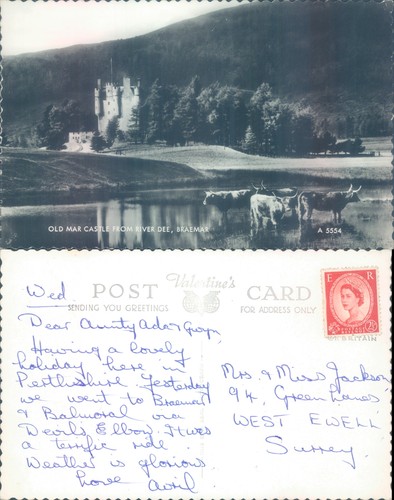 OLD MAR CASTLE FROM RIVER DEE, BRAEMAR
A 5554
Wed
Valentine's
POST CARD
SENDING YOU GREETINGS
FOR ADDRESS ONLY
E R
Dear Aunty Ada &
Having a lovely
holiday here in
Perthshire Yesterday
we went to Braemar
& Balmoral via
Devils Elbow. It was
a terrific ride
Weather is glorious
Love Avril
Mrs. & Miss Jackson
94, Green Lanes
WEST EWELL
Surrey.